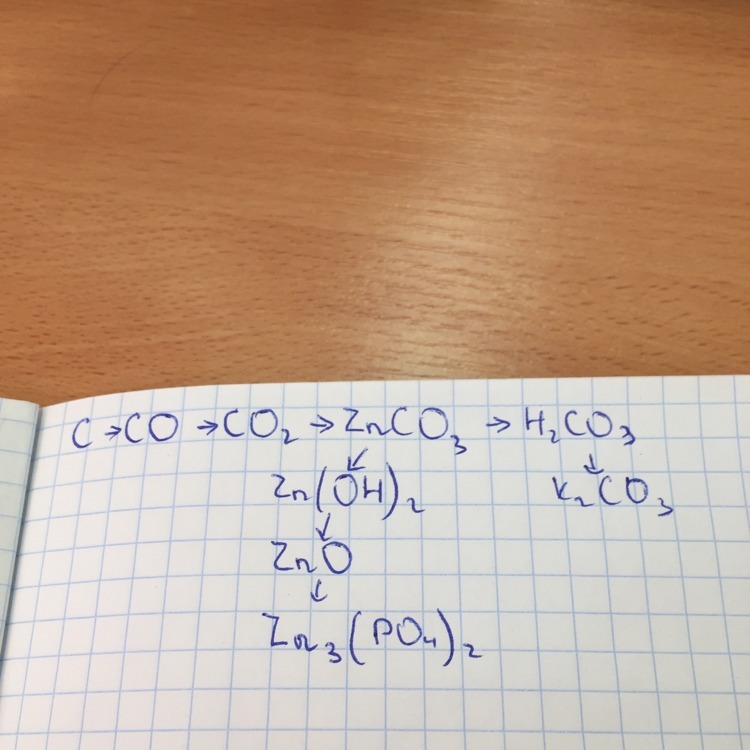 C → CO → CO₂ → ZnCO₃ → H₂CO₃
↙ ↓
Zn(OH)₂ K₂CO₃
↓
ZnO
↓
Zn₃(PO₄)₂